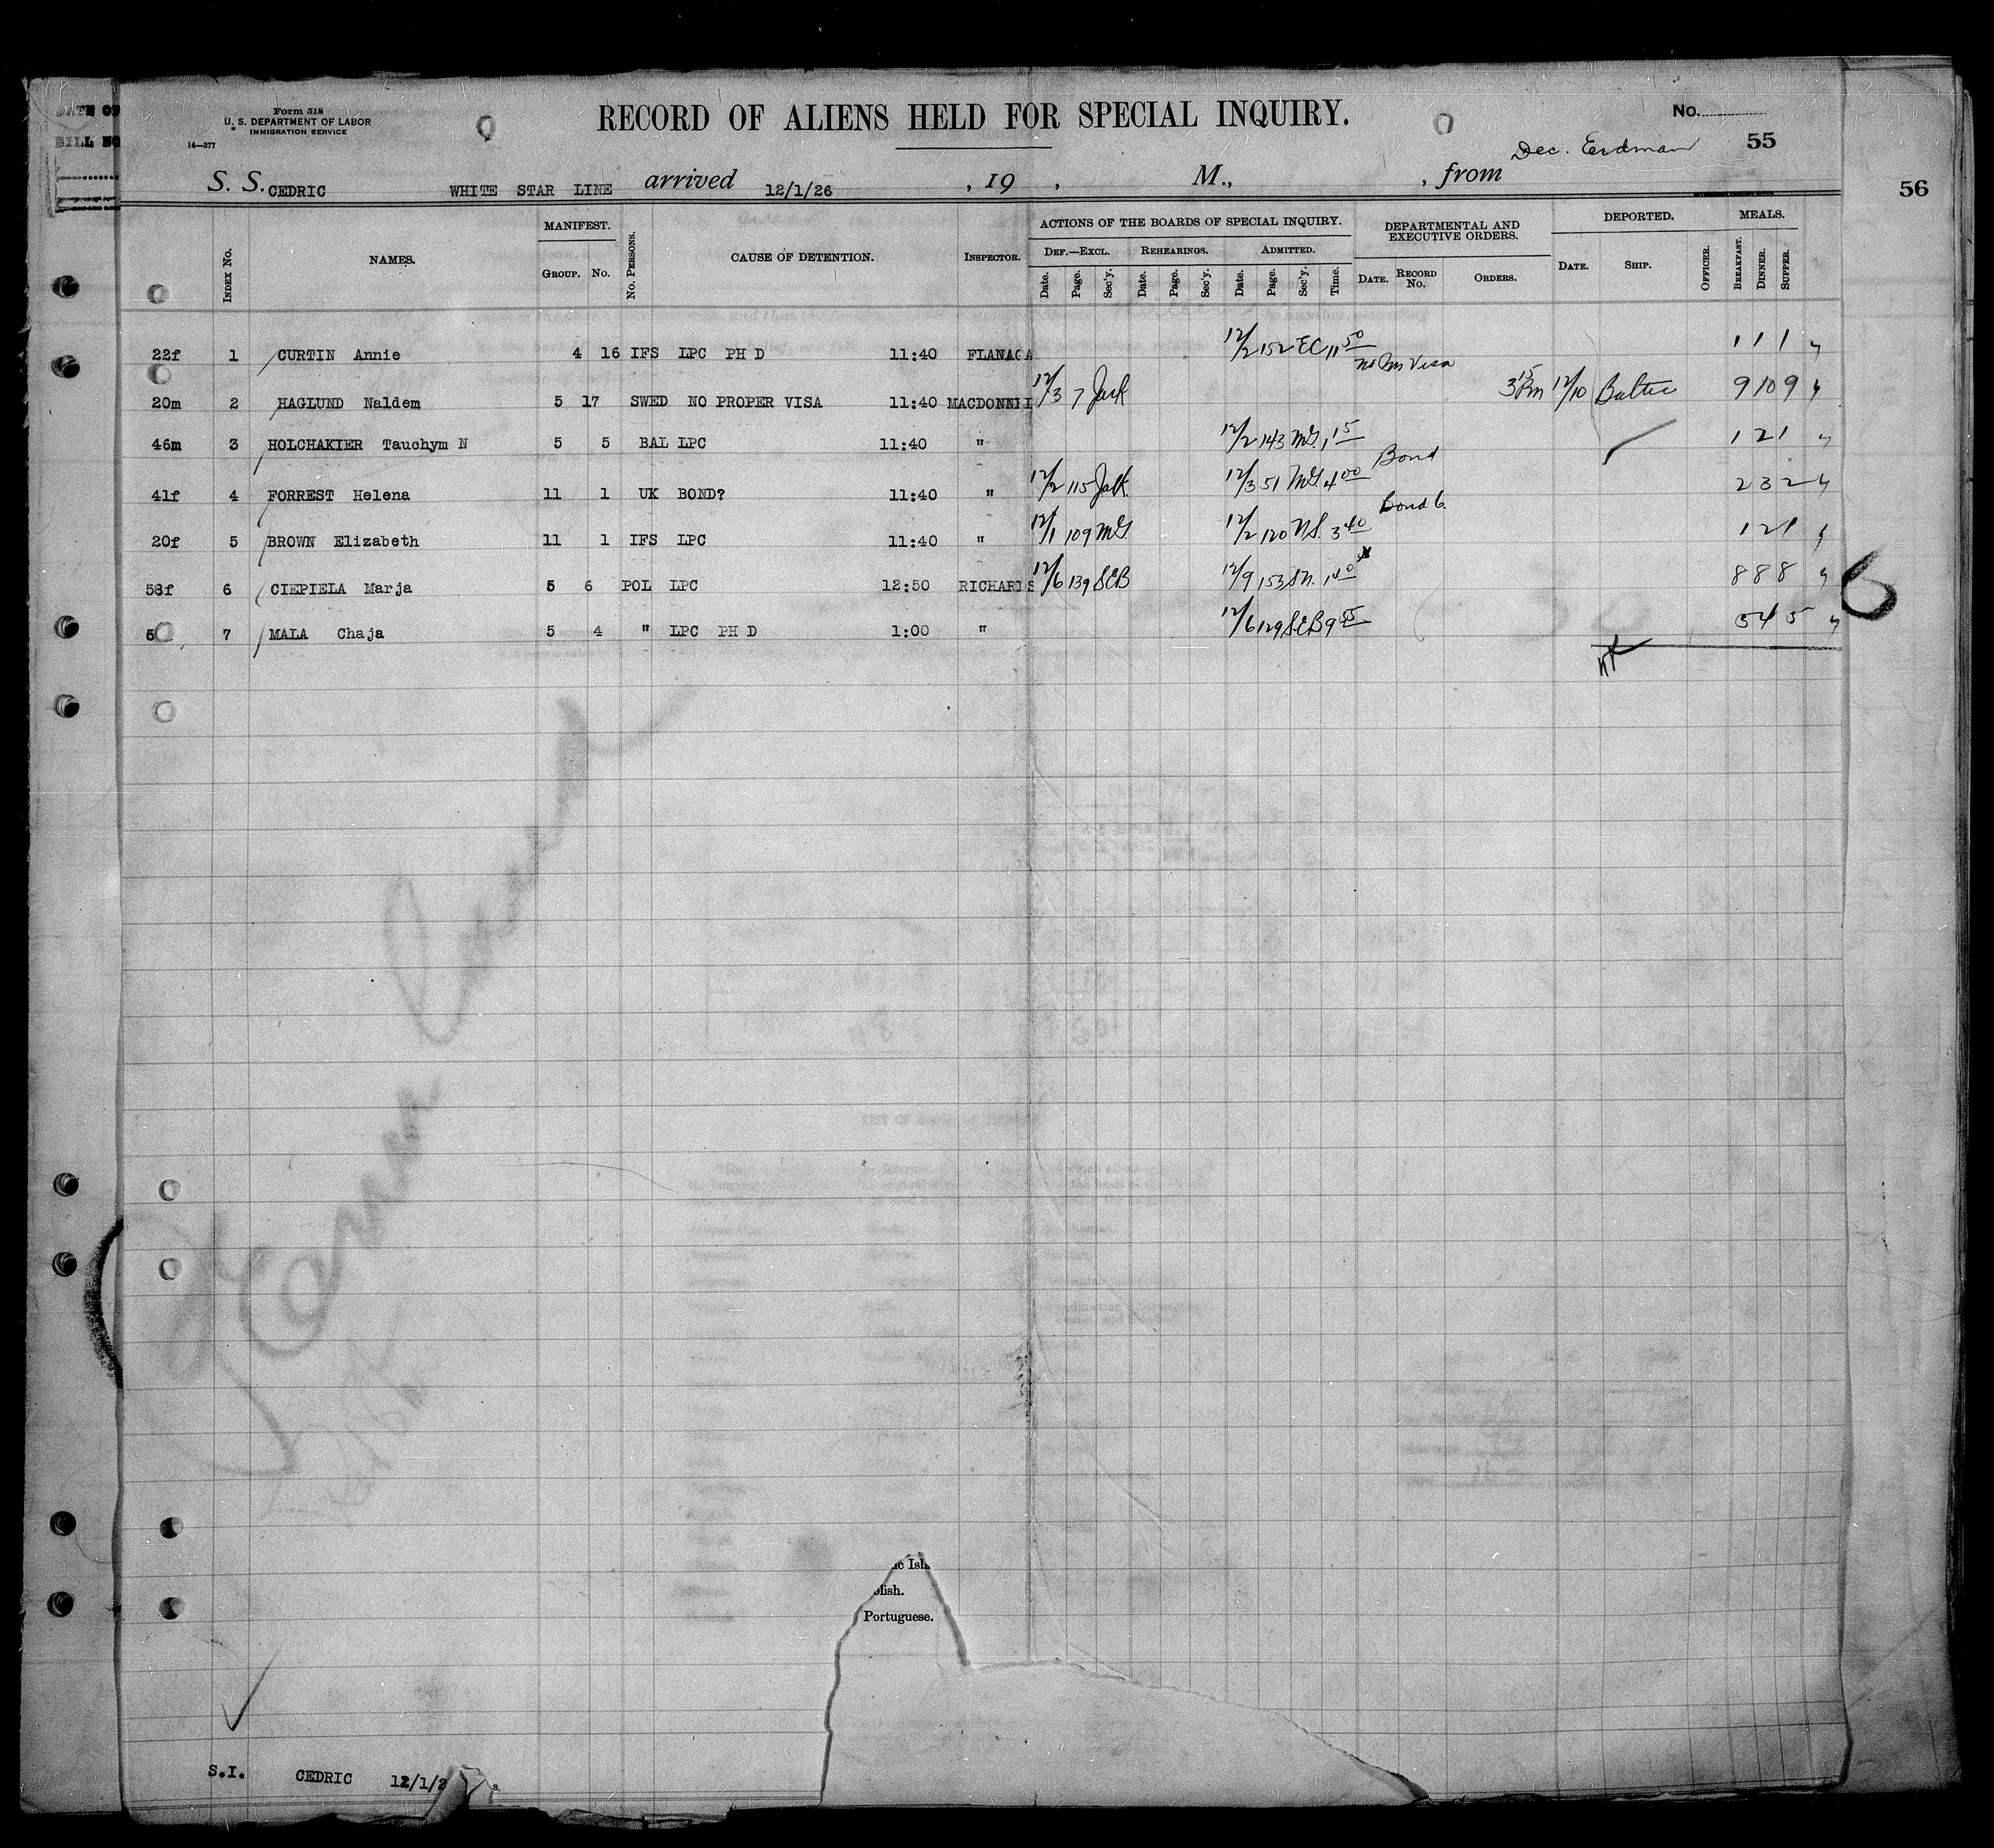 DATE OF
BILL NO
Form 518
U. S. DEPARTMENT OF LABOR
IMMIGRATION SERVICE
14—377
RECORD OF ALIENS HELD FOR SPECIAL INQUIRY.
No.
55
56
Dec. Erdman
S. S. CEDRIC WHITE STAR LINE arrived 12/1/26 , 19 , M., , from
INDEX NO.
NAMES.
MANIFEST.
GROUP. NO.
NO. PERSONS.
CAUSE OF DETENTION.
INSPECTOR.
ACTIONS OF THE BOARDS OF SPECIAL INQUIRY.
DEF.—EXCL. REHEARINGS. ADMITTED.
Date. Page. Sec'y. Date. Page. Sec'y. Date. Page. Sec'y. Time.
DEPARTMENTAL AND EXECUTIVE ORDERS.
DATE. RECORD NO. ORDERS.
DEPORTED.
DATE. SHIP. OFFICER.
MEALS.
BREAKFAST. DINNER. SUPPER.
22f 1 CURTIN Annie 4 16 IFS LPC PH D 11:40 FLANAGA 12/2 152 EC 11 50 1 1 1
No Im Visa
20m 2 HAGLUND Naldem 5 17 SWED NO PROPER VISA 11:40 MACDONNI 12/3 7 Jack 3 15 Pm 12/10 Baltic 9 10 9
46m 3 HOLCHAKIER Tauchym N 5 5 BAL LPC 11:40 " 12/2 143 MG 1 15 1 2 1
Bond
41f 4 FORREST Helena 11 1 UK BOND? 11:40 " 12/2 115 Jack 12/3 51 MG 4 00 2 3 2
Bond 6.
20f 5 BROWN Elizabeth 11 1 IFS LPC 11:40 " 12/1 109 MG 12/2 120 N.S. 3 40 1 2 1
58f 6 CIEPIELA Marja 5 6 POL LPC 12:50 RICHARDS 12/6 139 SEB 12/9 153 SN. 1 40 8 8 8
6
5 7 MALA Chaja 5 4 " LPC PH D 1:00 " 12/6 129 SEB 9 55 5 4 5
ic Isla
olish.
Portuguese.
S.I. CEDRIC 12/1/2